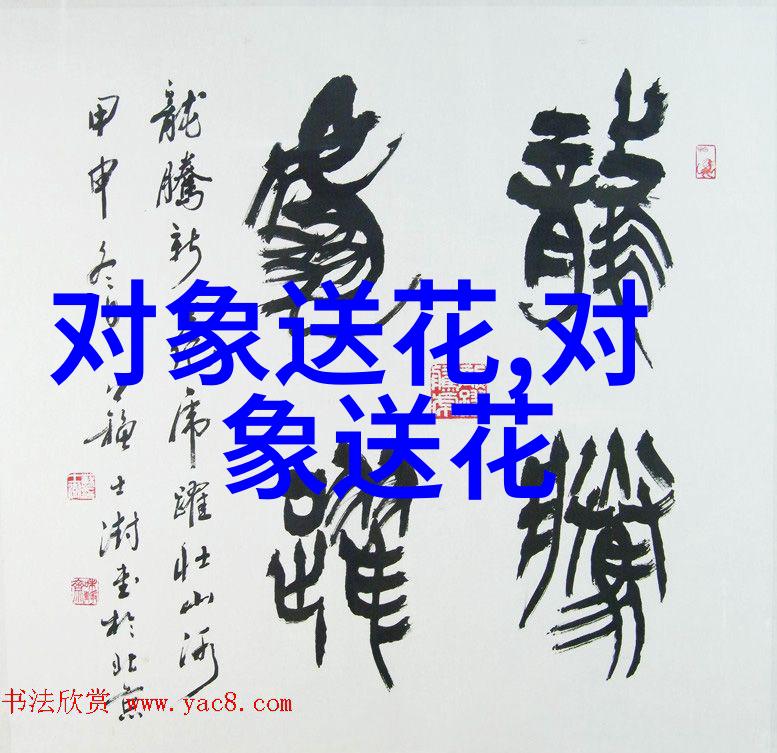 龍騰
虎躍
龍騰新 虎躍壯山河
甲申冬月 蘇士澍書於北京
对象送花,对
象送花
书法欣赏 www.yac8.com